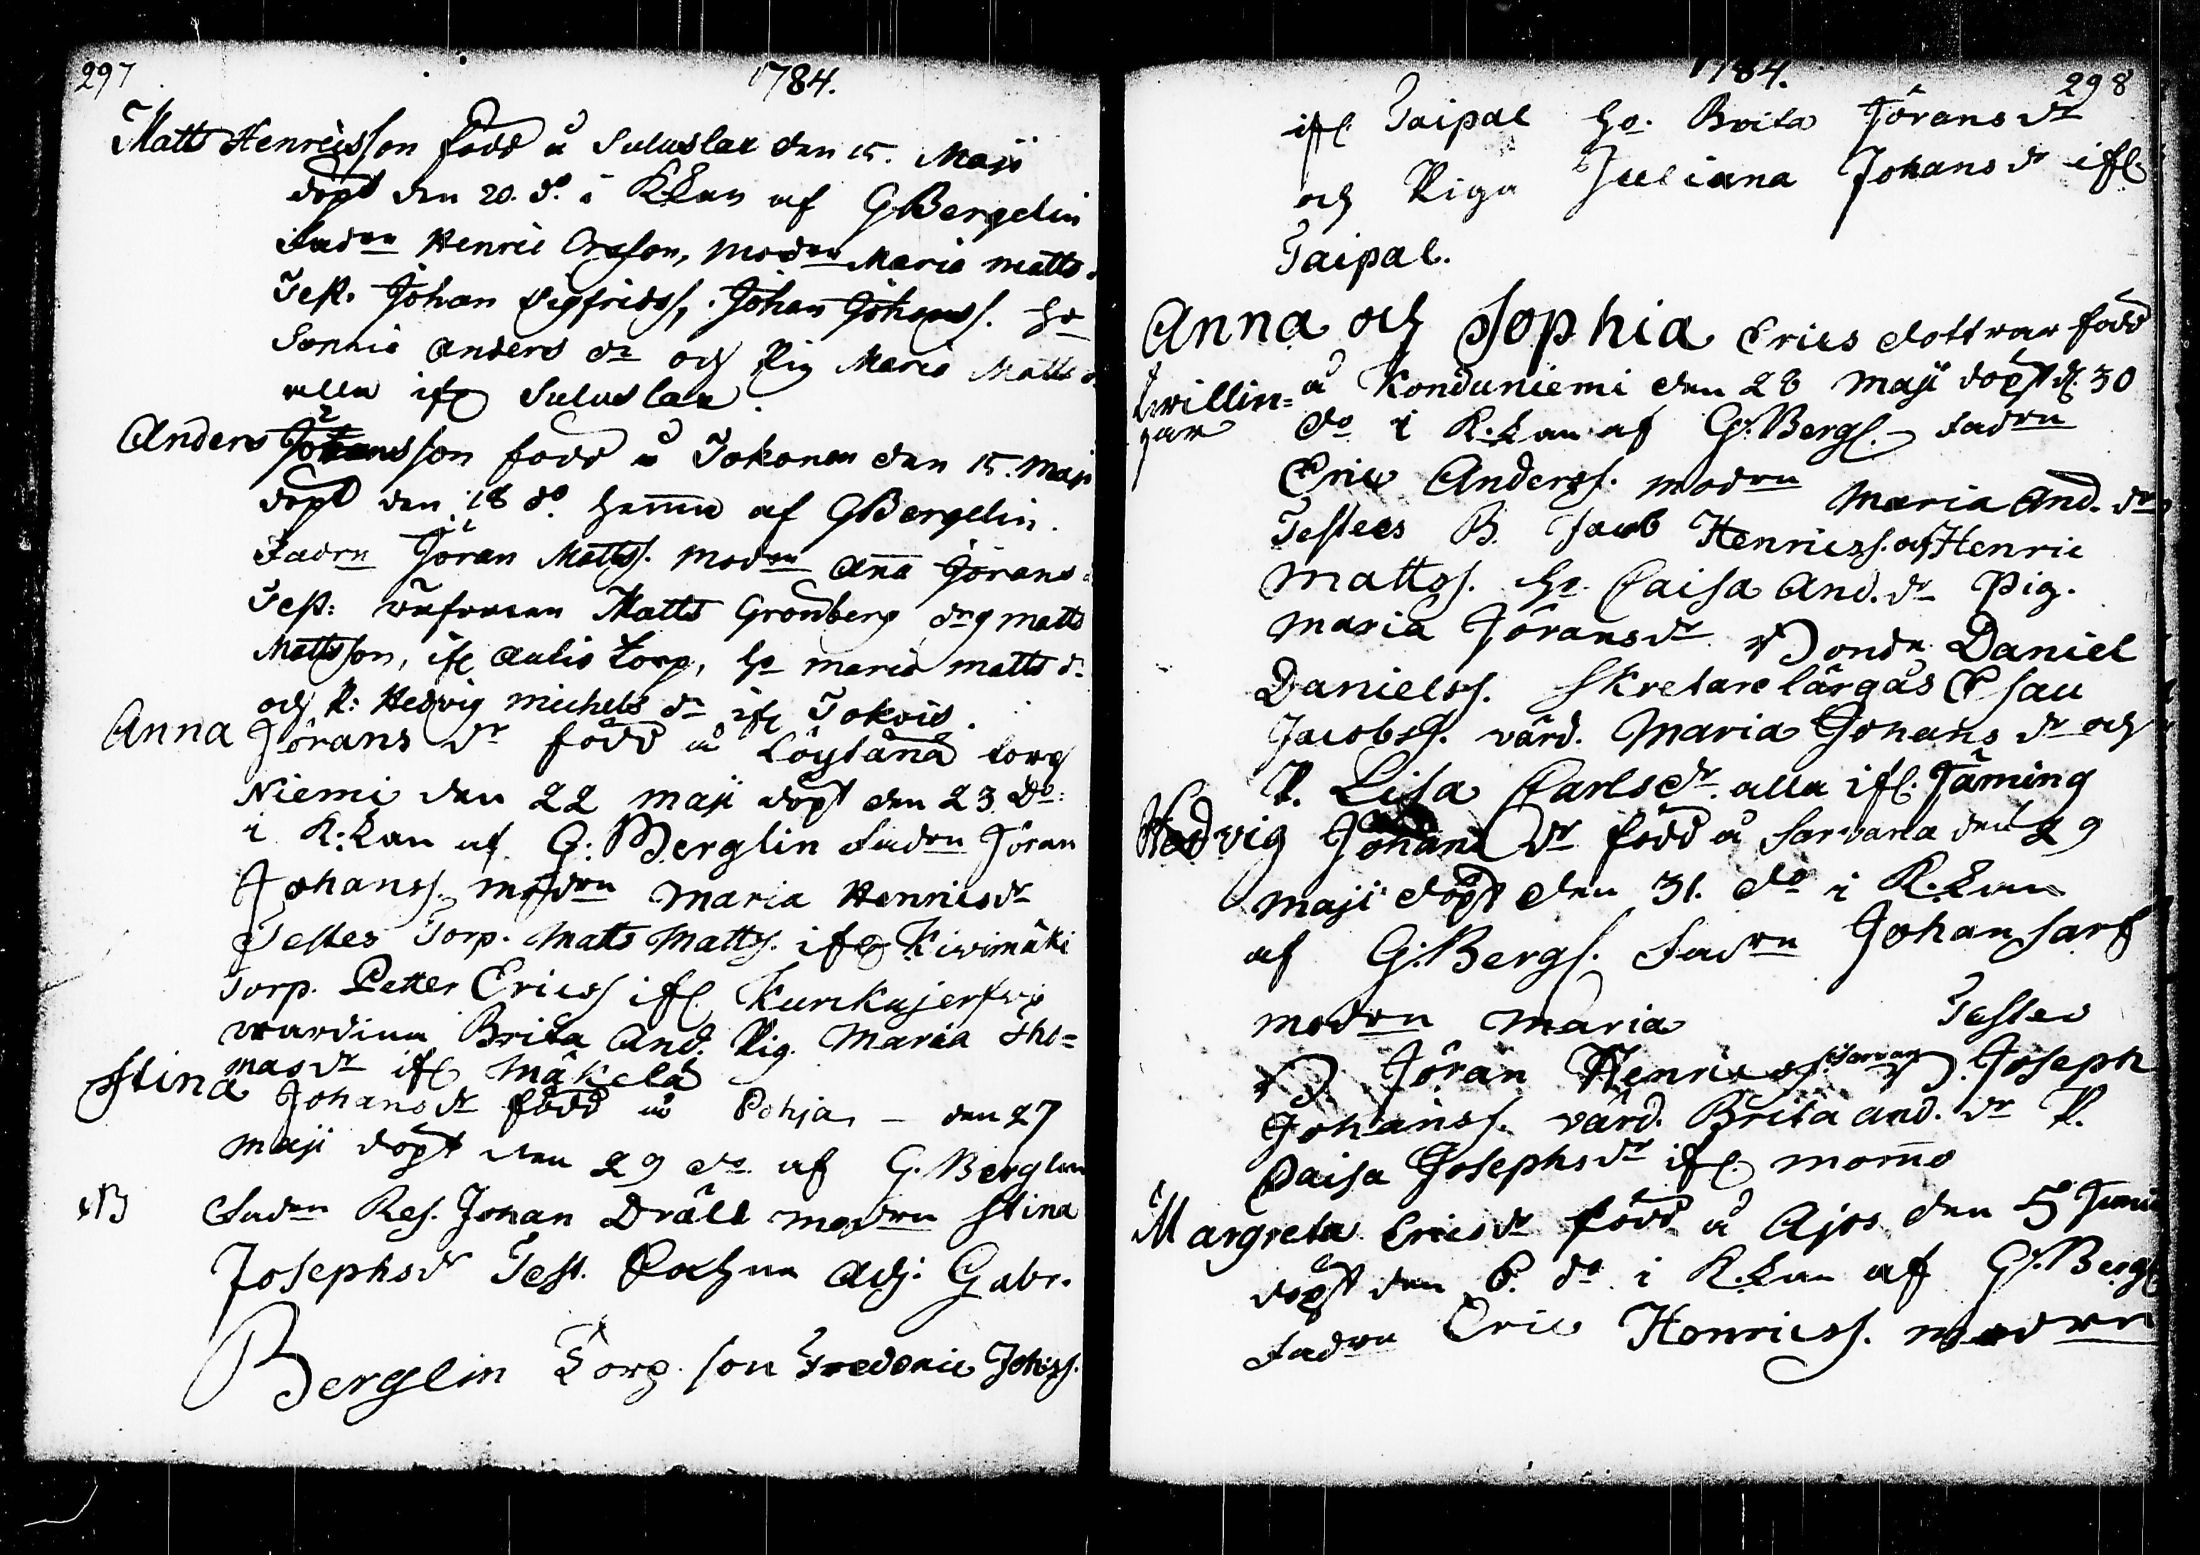 297
1784.
Matts Henricsson född å Suluslax den 15. Maji
döpt den 20. do i K:Kan af GBergelin
Fadren Henric Ersson, Modren Maria Matts
Test. Johan Sigfridss, Johan Johanss. Ho
Sonnia Anders dr och Pig Maria Matts d
alla ifr Suluslax.
Anders son född å Tokonen den 15. Maji
döpt den 18 do hemma af GBergelin.
Fadrn Jöran Mattss. Modrn Anna Jörans
Test: Matts Gronberg drg Matts
Mattsson, ifr Torp, Ho Maria Matts d.
och P: Hedvig Michels dr ifr Tokois.
Anna Jörans dr född å Löytänä torp
Niemi den 22 Maji döpt den 23 Do:
i K:Kan af G: Berglin Fadrn Jöran
Johanss. Modrn Maria Henricsdr
Testes Torp. Matts Mattss. ifr Kivimäki
Torp. Petter Ericss ifr. Kurckujerfvi
wärdinn Brita And. Pig. Maria Tho=
mas dr ifr Mäkelä
Stina Johans dr född å Pohja – den 27
Maji döpt den 29 do af G. Berglin
NB Fadrn Res. Johan Dräll Modrn Stina
Josephsdr Test. Adj. Gabr.
Berglin Torp. son Frederic Johss.
1784.
298
ifr. Taipal Ho. Brita Jörans dr
och Piga Juliana Johans dr ifr
Taipal.
Anna och Sophia Erics dottrar född
twillin= å Konduniemi den 28 Maji döpt d. 30
gar do i K.Kan af G. Bergl. – Fadrn
Eric Anderss. Modrn Maria And. dr
Testes B. Jacob Henricss. och Henric
Mattss. Ho. Caisa And. dr Pig.
Maria Jörans dr Bondn Daniel
Danielss. Skretare lärgås Esau
Jacobss. värd. Maria Johans dr och
P. Lisa Carls dr. alla ifr. Jäming
Hedvig Johans dr född å Sarvana den 29
Maji döpt den 31. do i K.Kan
af G. Bergl. Fadrn Johan Sarf
Modrn Maria Testes
B Jöran Henricss. B. Joseph
Johanss. värd. Brita And. dr P.
Caisa Josephs dr ifr. Mommo
Margreta Erics dr född å Ajos den 5 Junii
döpt den 6. do i K.Kan af G. Bergl
Fadrn Eric Henricss. Modrn